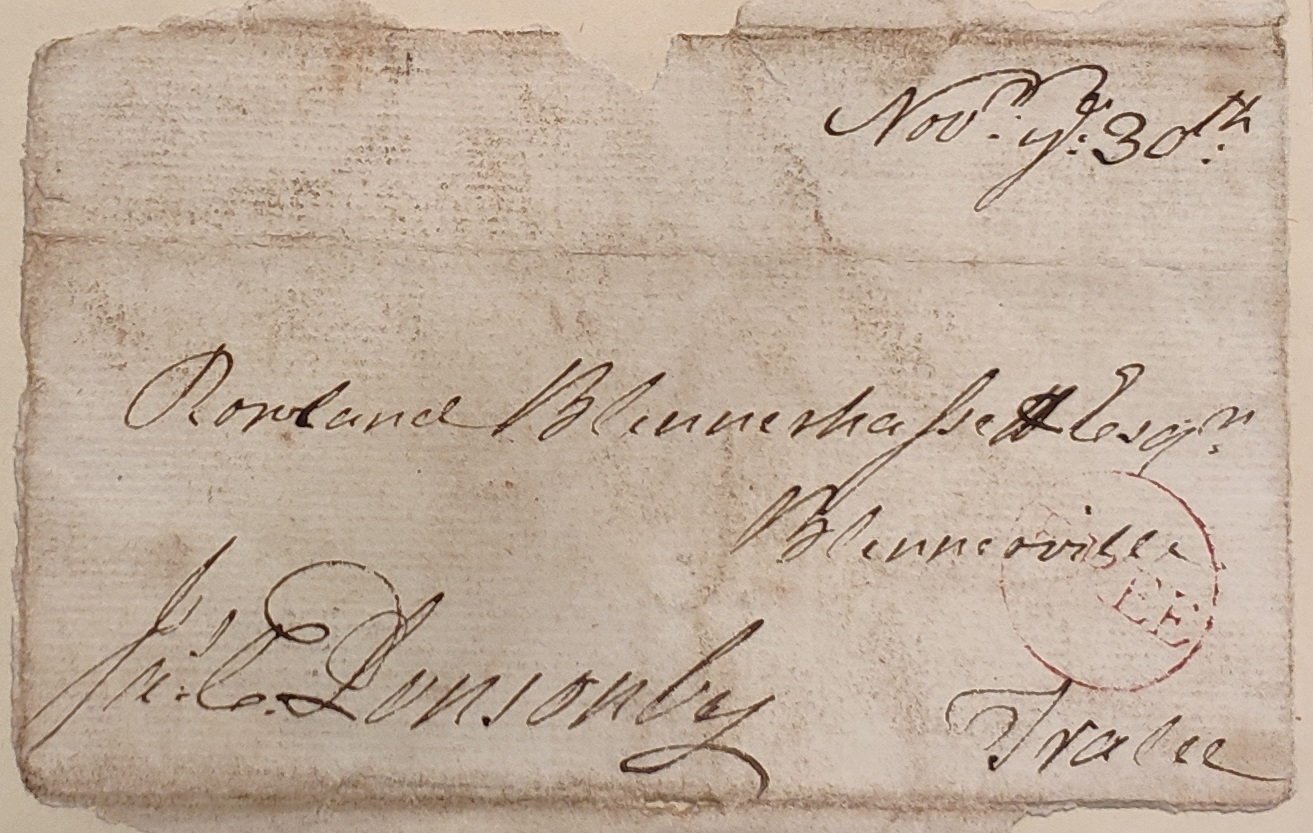 Novr. ye. 30th.
Rowland Blennerhassett Esqr.
Blennerville
FREE
Jn. C. Ponsonby
Tralee